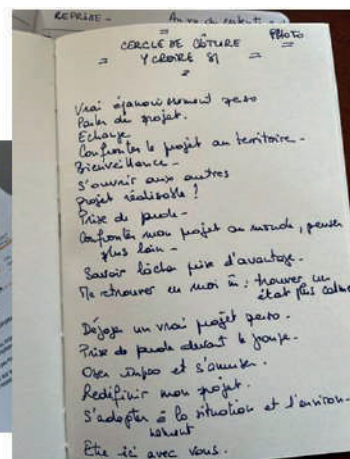 REPRISE -
PHOTO
CERCLE DE CLÔTURE
Y CROIRE 81
Vrai épanouissement perso
Parler du projet.
Echange
Confronter le projet au territoire -
Bienveillance -
S'ouvrir aux autres
Projet réalisable !
Prise de parole -
Confronter mon projet au monde, penser
plus loin -
Savoir lâcher prise d'avantage.
Me retrouver en moi m : trouver un
état plus calme
Dégager un vrai projet perso.
Prise de parole devant le groupe.
Oser impro et s'amuser.
Redéfinir mon projet.
S'adapter à la situation et l'environ-
nement
Etre ici avec vous.